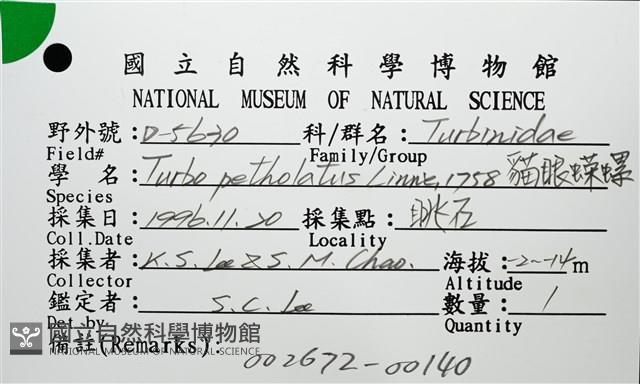 國立自然科學博物館
NATIONAL MUSEUM OF NATURAL SCIENCE
野外號：D-5630 科/群名：Turbinidae
Field# Family/Group
學 名：Turbo petholatus Linne, 1758 貓眼蠑螺
Species
採集日：1996.11.20 採集點：眺石
Coll.Date Locality
採集者：K.S. Lee & S. M. Chao. 海拔：-2~-14m
Collector Altitude
鑑定者：S.C. Lee 數量：1
Det.by Quantity
國立自然科學博物館
NATIONAL MUSEUM OF NATURAL SCIENCE
備註(Remarks)： 002672-00140